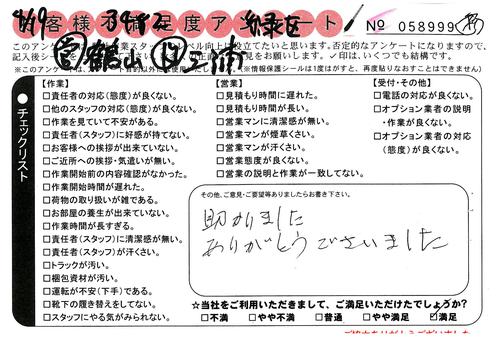 お客様不満足度アンケート
№ 058999
このアンケートは
レベル向上に役立てたいと思います。否定的なアンケートになりますので、
記入後シールを
お願いします。✓印は、いくつでも結構です。
※情報保護シールは1度はがすと、再度貼りなおすことはできません。
チェックリスト
【作業】
□責任者の対応(態度)が良くない。
□他のスタッフの対応(態度)が良くない。
□作業を見ていて不安がある。
□責任者(スタッフ)に好感が持てない。
□お客様への挨拶が出来ていない。
□ご近所への挨拶・気遣いが無い。
□作業開始前の内容確認がなかった。
□作業開始時間が遅れた。
□荷物の取り扱いが雑である。
□お部屋の養生が出来ていない。
□作業時間が長すぎる。
□責任者(スタッフ)に清潔感が無い。
□責任者(スタッフ)が汗くさい。
□トラックが汚い。
□梱包資材が汚い。
□運転が不安(下手)である。
□靴下の履き替えをしてない。
□スタッフにやる気がみられない。
【営業】
□見積もり時間に遅れた。
□見積もり時間が長い。
□営業マンに清潔感が無い。
□営業マンが煙草くさい。
□営業マンが汗くさい。
□営業態度が良くない。
□営業の説明と作業が一致してない。
【受付・その他】
□電話の対応が良くない。
□オプション業者の説明
・作業が良くない。
□オプション業者の対応
(態度)が良くない。
その他、ご意見・ご要望等ありましたらお書き下さい。
助かりました
ありがとうございました
☆当社をご利用いただきまして、ご満足いただけたでしょうか?
□不満 □やや不満 □普通 □やや満足 ☑満足